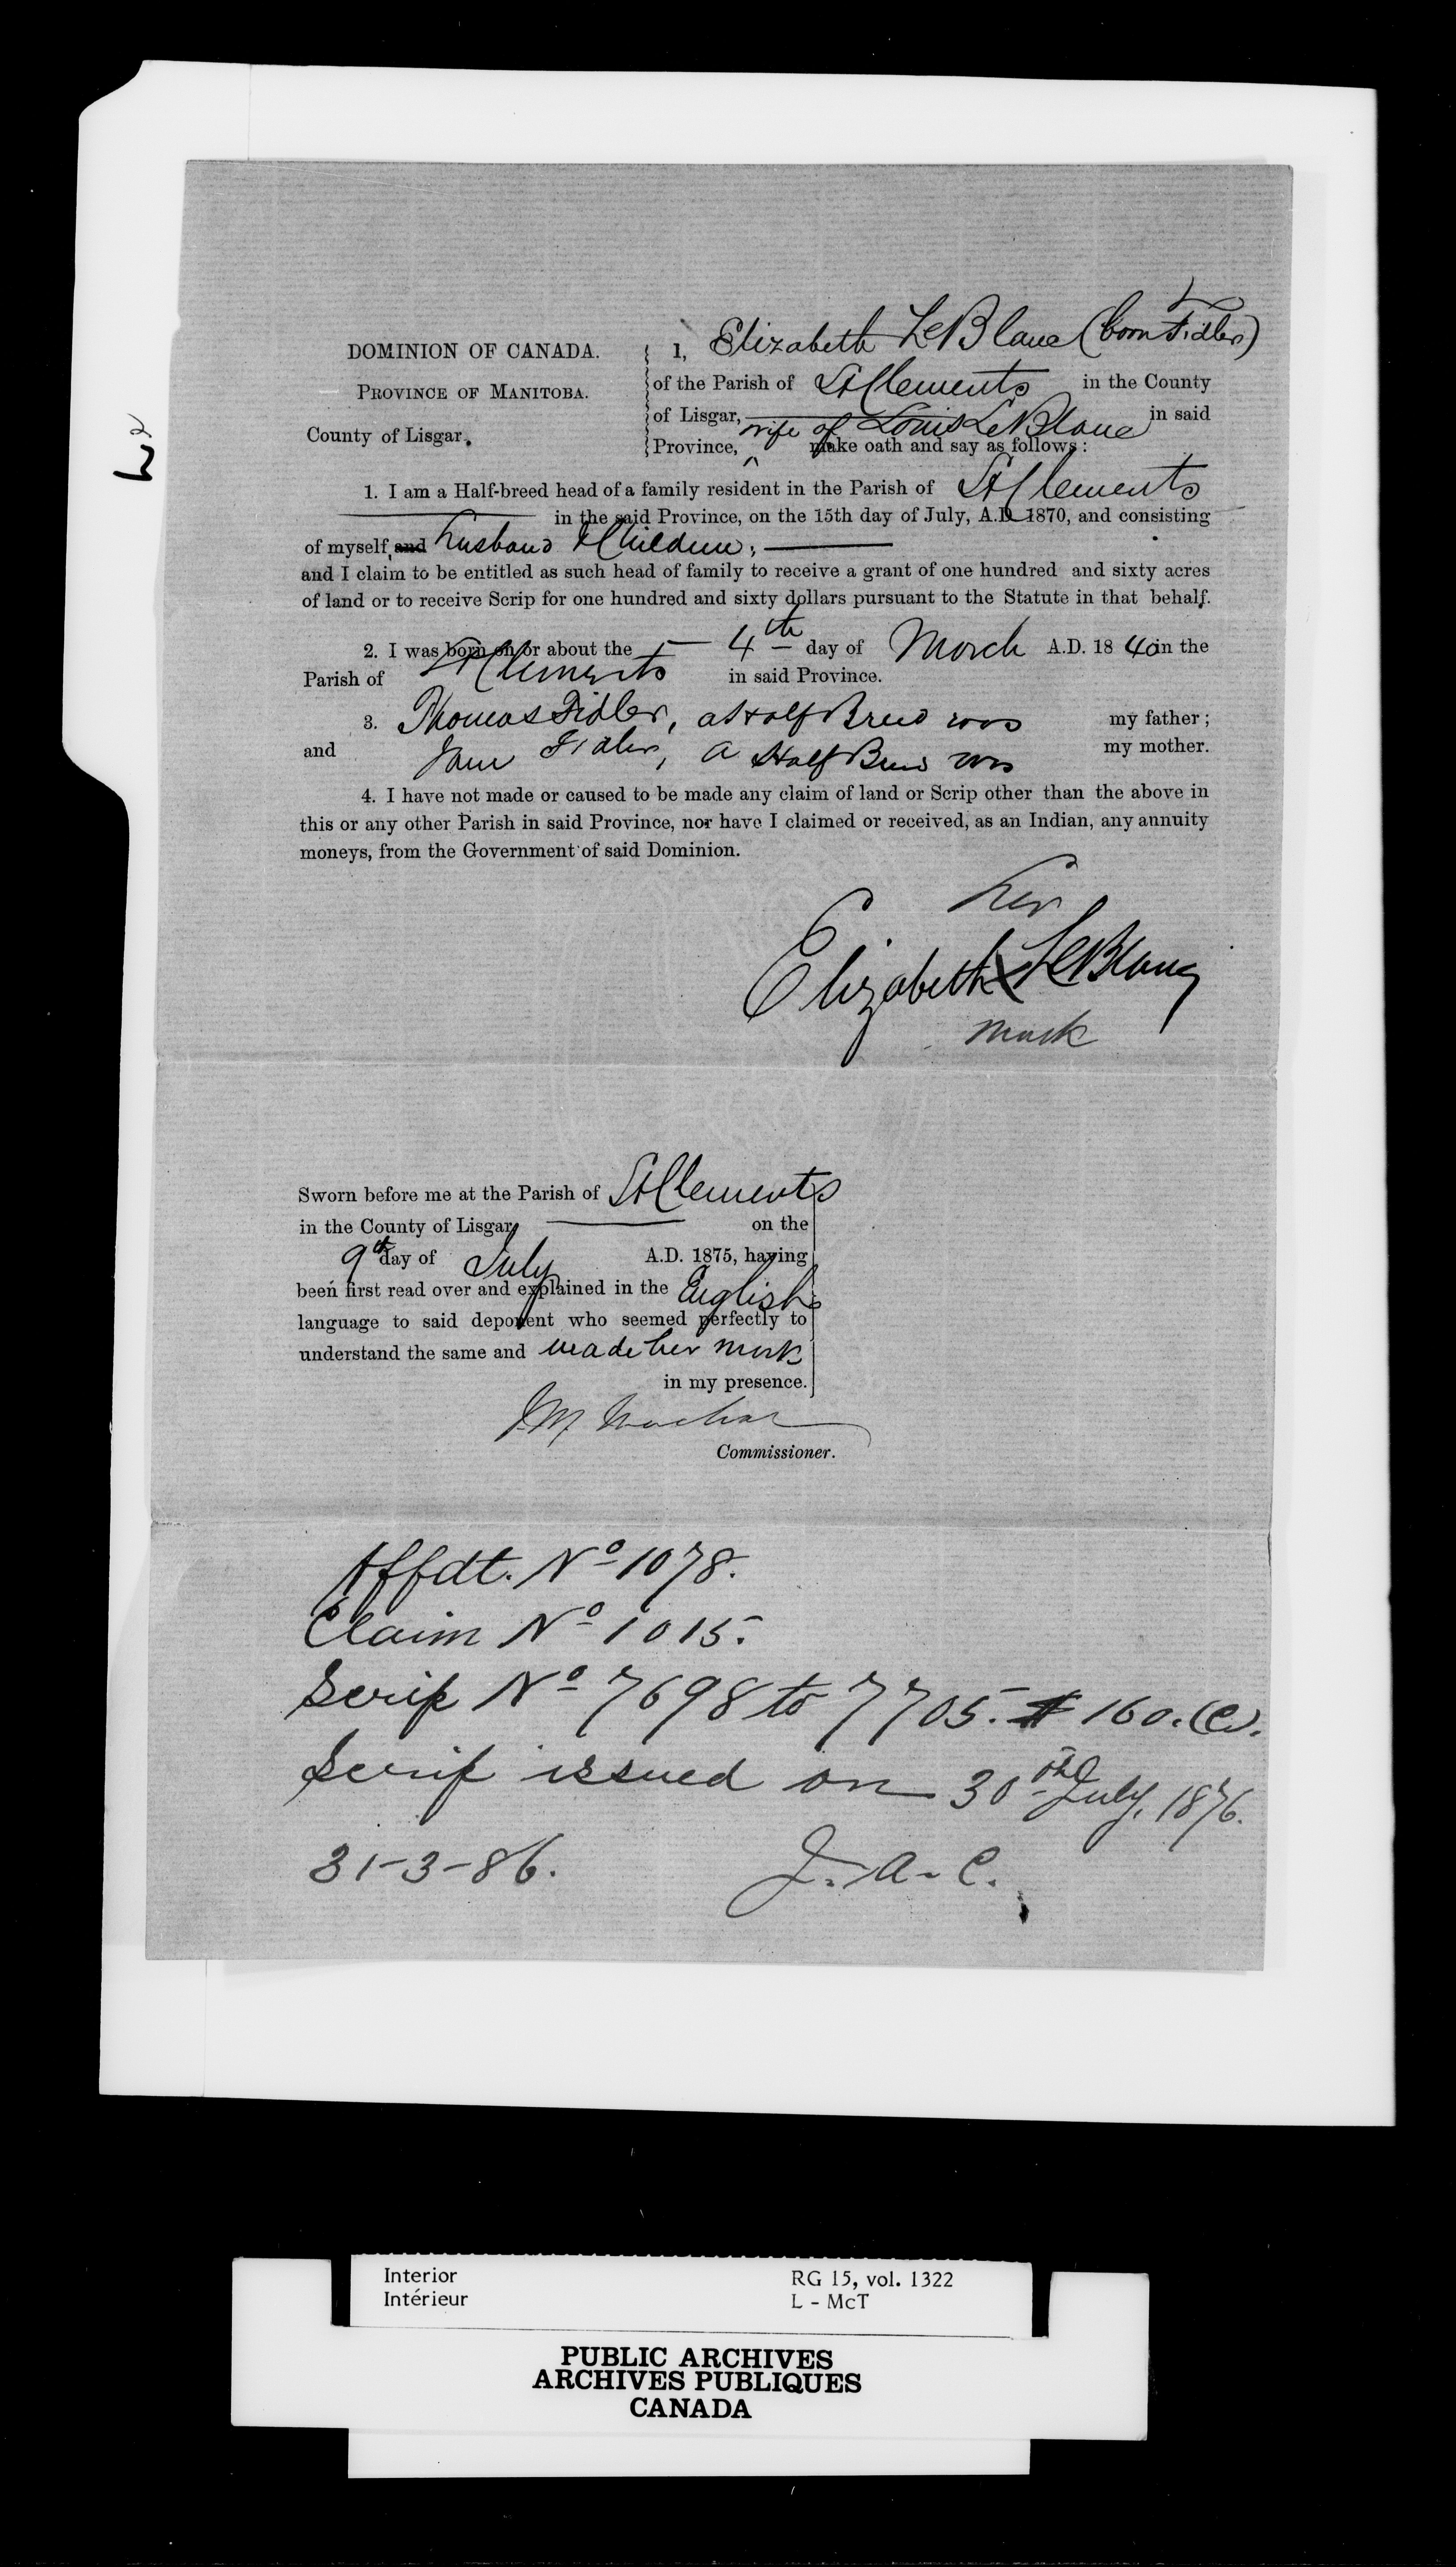 DOMINION OF CANADA.
PROVINCE OF MANITOBA.
County of Lisgar.
I, Elizabeth LeBlanc (born Fidler)
of the Parish of St Clements in the County
of Lisgar, in said
Province, wife of Louis LeBlanc make oath and say as follows:
1. I am a Half-breed head of a family resident in the Parish of St Clements
in the said Province, on the 15th day of July, A.D. 1870, and consisting
of myself, and husband & Children;
and I claim to be entitled as such head of family to receive a grant of one hundred and sixty acres
of land or to receive Scrip for one hundred and sixty dollars pursuant to the Statute in that behalf.
2. I was born on or about the 4th day of March A.D. 1840 in the
Parish of St Clements in said Province.
3. Thomas Fidler, a Half Breed was my father;
and Jane Fidler, a Half Breed was my mother.
4. I have not made or caused to be made any claim of land or Scrip other than the above in
this or any other Parish in said Province, nor have I claimed or received, as an Indian, any annuity
moneys, from the Government of said Dominion.
her
Elizabeth X LeBlanc
mark
Sworn before me at the Parish of St Clements
in the County of Lisgar, on the
9th day of July A.D. 1875, having
been first read over and explained in the English
language to said deponent who seemed perfectly to
understand the same and made her mark
in my presence.
J.M. Machar
Commissioner.
Affdt. No 1078.
Claim No 1015.
Scrip No 7698 to 7705. $160.(C).
Scrip issued on 30th July, 1876.
31-3-86. J.A.C.
Interior RG 15, vol. 1322
Intérieur L - McT
PUBLIC ARCHIVES
ARCHIVES PUBLIQUES
CANADA